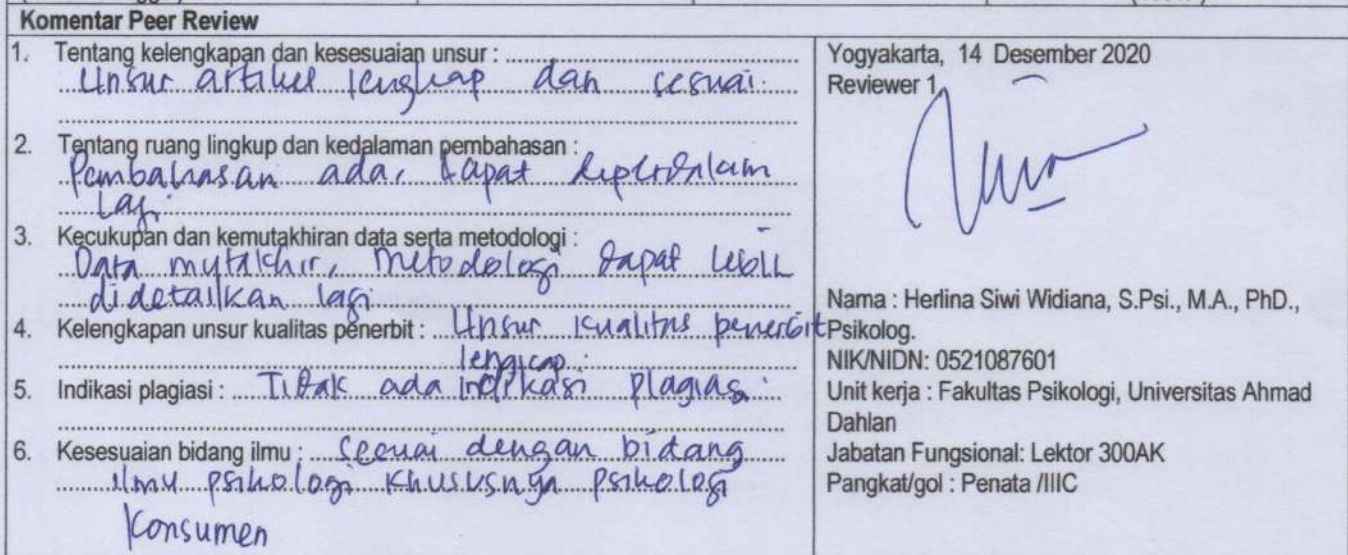 Komentar Peer Review
1. Tentang kelengkapan dan kesesuaian unsur :
Unsur artikel lengkap dan sesuai.
2. Tentang ruang lingkup dan kedalaman pembahasan :
Pembahasan ada, dapat diperdalam
lagi.
3. Kecukupan dan kemutakhiran data serta metodologi :
Data mutakhir, metodologi dapat lebih
didetailkan lagi
4. Kelengkapan unsur kualitas penerbit : Unsur kualitas penerbit
lengkap.
5. Indikasi plagiasi : Tidak ada indikasi plagiasi.
6. Kesesuaian bidang ilmu : Sesuai dengan bidang
ilmu psikologi khususnya psikologi
konsumen
Yogyakarta, 14 Desember 2020
Reviewer 1,
Nama : Herlina Siwi Widiana, S.Psi., M.A., PhD.,
Psikolog.
NIK/NIDN: 0521087601
Unit kerja : Fakultas Psikologi, Universitas Ahmad
Dahlan
Jabatan Fungsional: Lektor 300AK
Pangkat/gol : Penata /IIIC